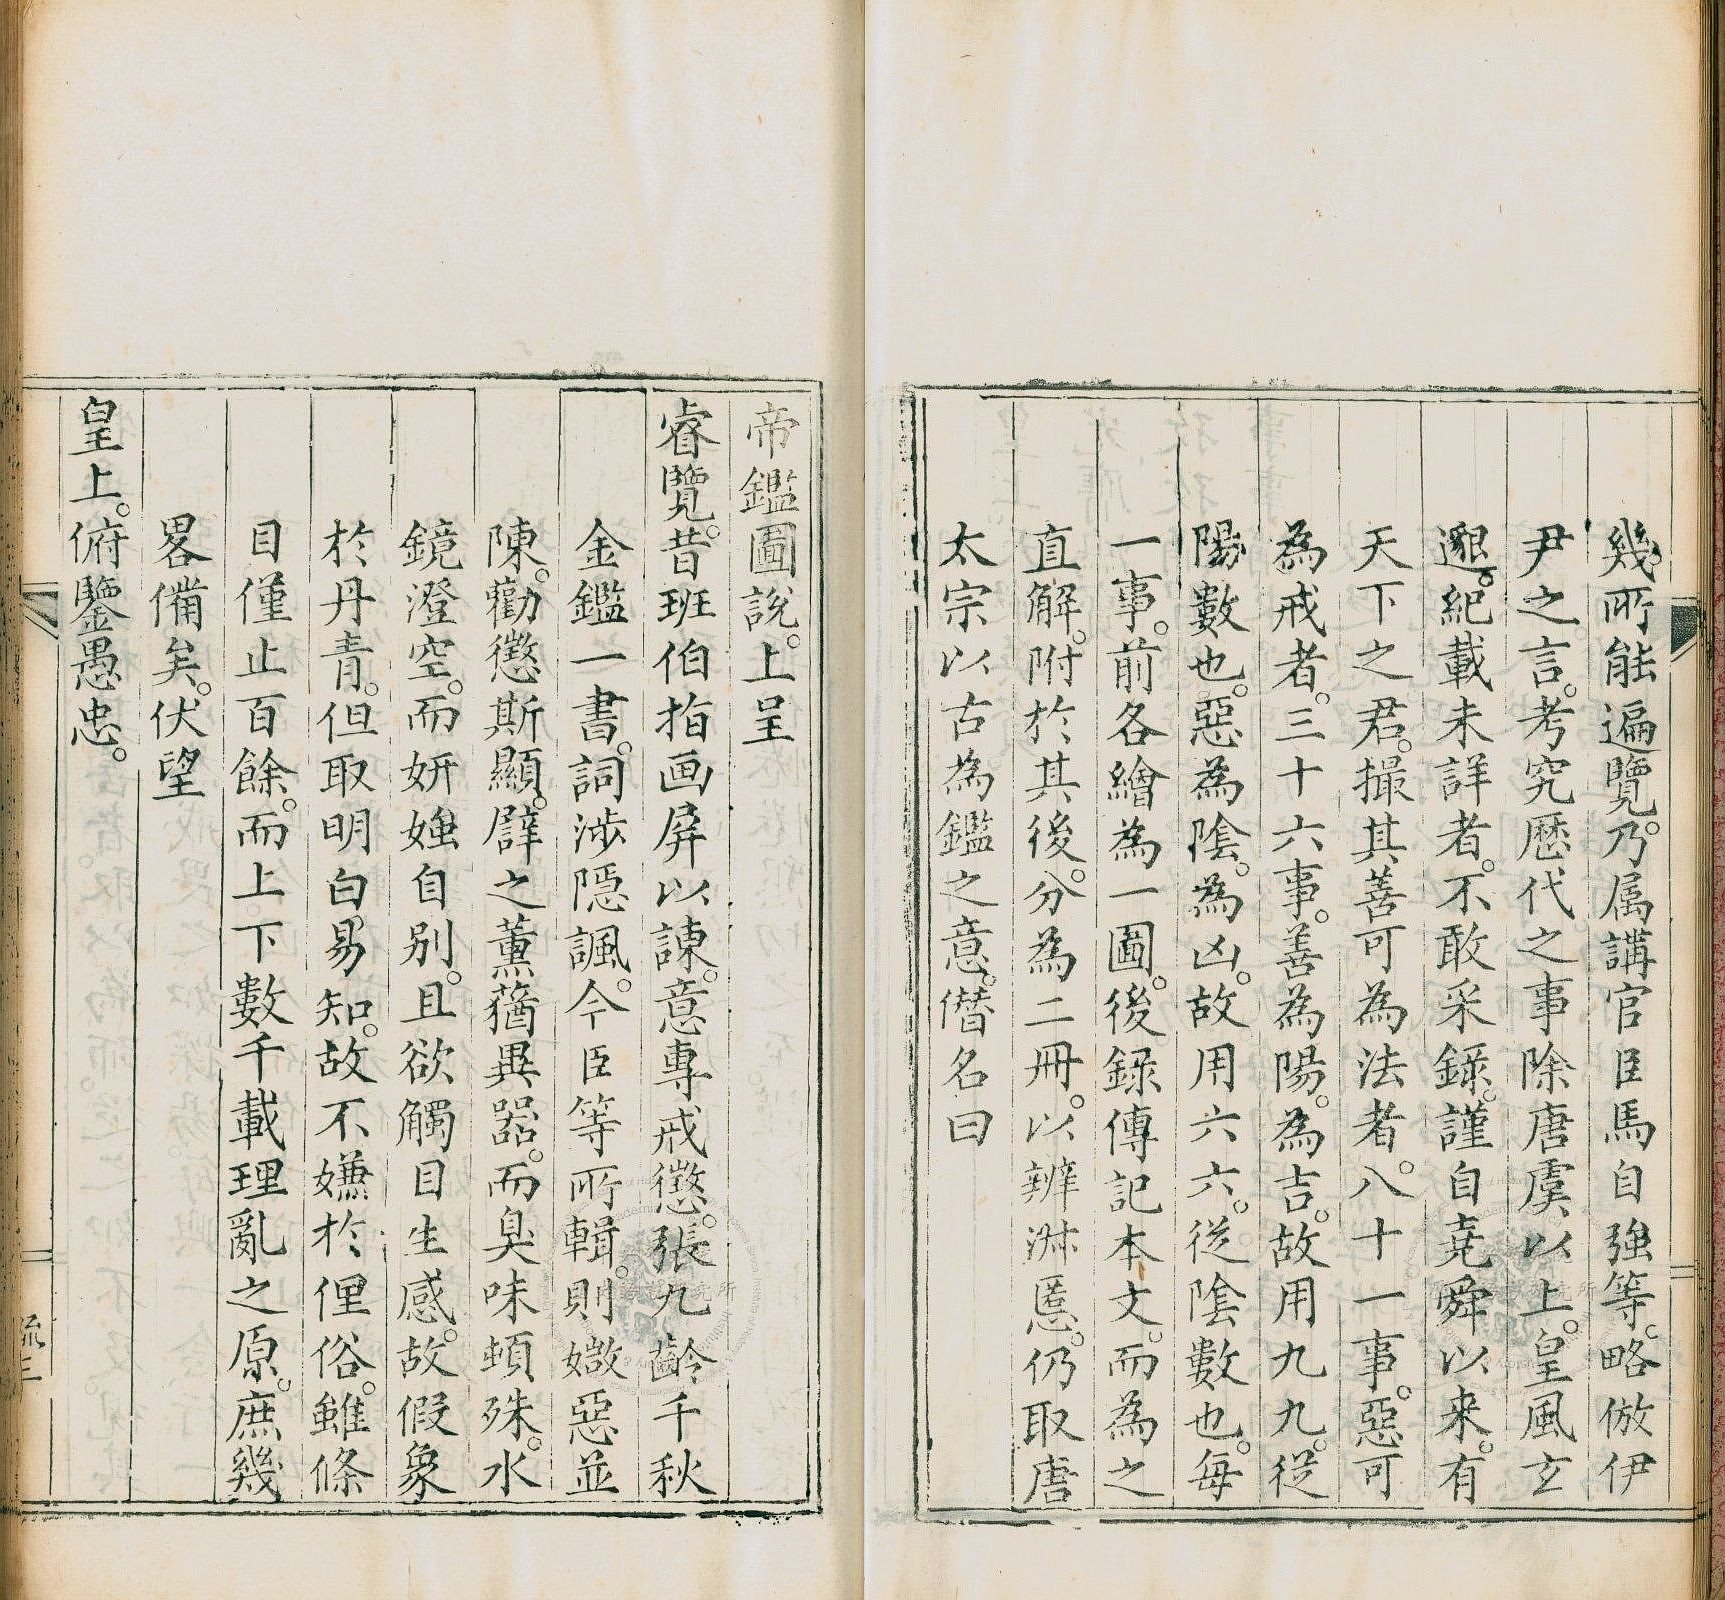 幾所能遍覽。乃属講官臣馬自強等。略倣伊
尹之言。考究歷代之事除唐虞以上。皇風玄
邈。紀載未詳者。不敢采錄。謹自堯舜以来。有
天下之君。撮其善可為法者。八十一事。惡可
為戒者。三十六事。善為陽。為吉。故用九九。從
陽數也。惡為陰。為凶。故用六六。從陰數也。每
一事。前各繪為一圖。後錄傳記本文。而為之
直解。附於其後。分為二冊。以辨淋慝。仍取唐
太宗以古為鑑之意。僣名曰
帝鑑圖說。上呈
睿覽。昔班伯指画屏以諫。意專戒懲。張九齡千秋
金鑑一書。詞涉隱諷。今臣等所輯。則媺惡並
陳。勸懲斯顯。譬之薰蕕異器。而臭味頓殊。水
鏡澄空。而妍媸自別。且欲觸目生感。故假象
於丹青。但取明白易知。故不嫌於俚俗。雖條
目僅止百餘。而上下數千載理亂之原。庶幾
畧備矣。伏望
皇上。俯鑒愚忠。
疏三